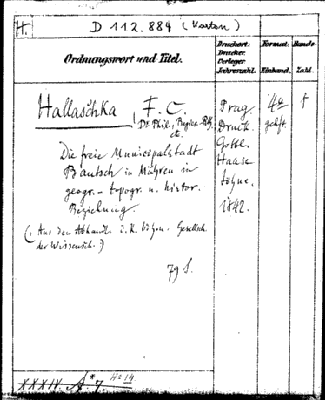 H.
D 112.889 (Kasten)
Ordnungswort und Titel.
Druckort.
Drucker.
Verleger
Jahreszahl.
Format.
Einband.
Bände-
Zahl.
Hallaschka, F. C.
Dr Phil.,
etc.
Die freie Municipalstadt
Bautsch in Mähren in
geogr.- topogr. u. histor.
Beziehung.
(Aus den Abhandl. d. K. Böhm. Gesellsch.
der Wissensch.)
79 S.
Prag
Druck.
Gottl.
Haase
Söhne.
1842.
4o
geh.
1
XXXIV. A. 7